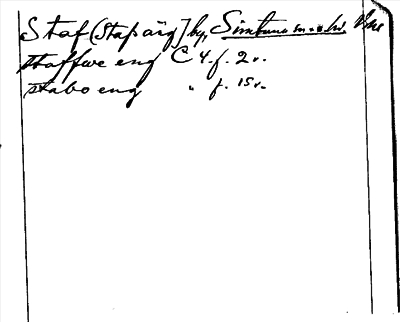 Staf (Stapäng) by, Simtuna sn. o. hd.
staffwe eng C 4. f. 2 v.
stabo eng " f. 15 v.